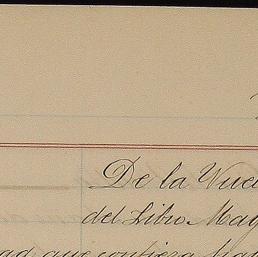 De la Vuel
del Libro May
ad que confiera ha